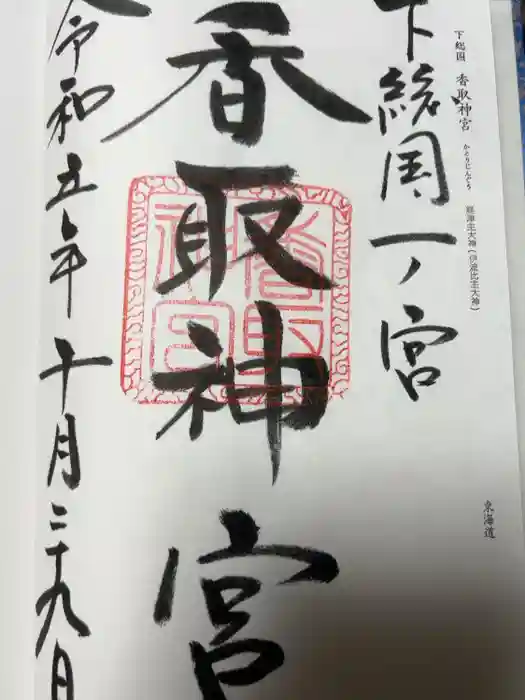 下総国 香取神宮 かとりじんぐう
経津主大神(伊波比主大神)
東海道
下総国一ノ宮
香取神宮
香取神宮
令和五年十月二十九日